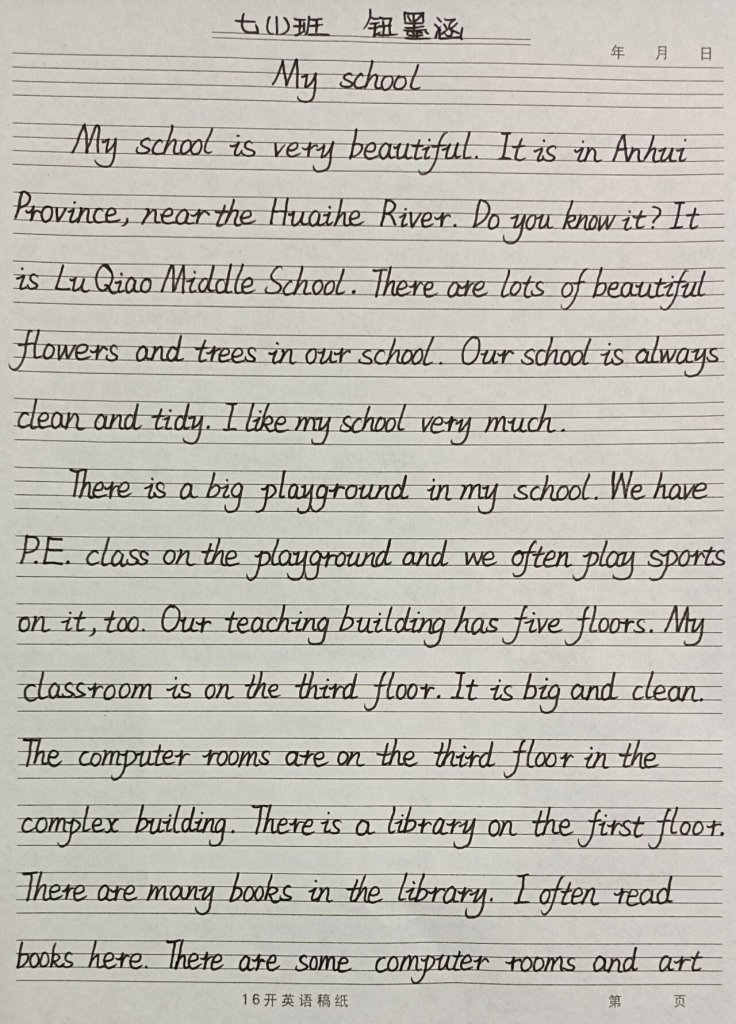 七(1)班 钮墨涵
年 月 日
My school
My school is very beautiful. It is in Anhui
Province, near the Huaihe River. Do you know it? It
is Lu Qiao Middle School. There are lots of beautiful
flowers and trees in our school. Our school is always
clean and tidy. I like my school very much.
There is a big playground in my school. We have
P.E. class on the playground and we often play sports
on it, too. Our teaching building has five floors. My
classroom is on the third floor. It is big and clean.
The computer rooms are on the third floor in the
complex building. There is a library on the first floor.
There are many books in the library. I often read
books here. There are some computer rooms and art
16开英语稿纸 第 页